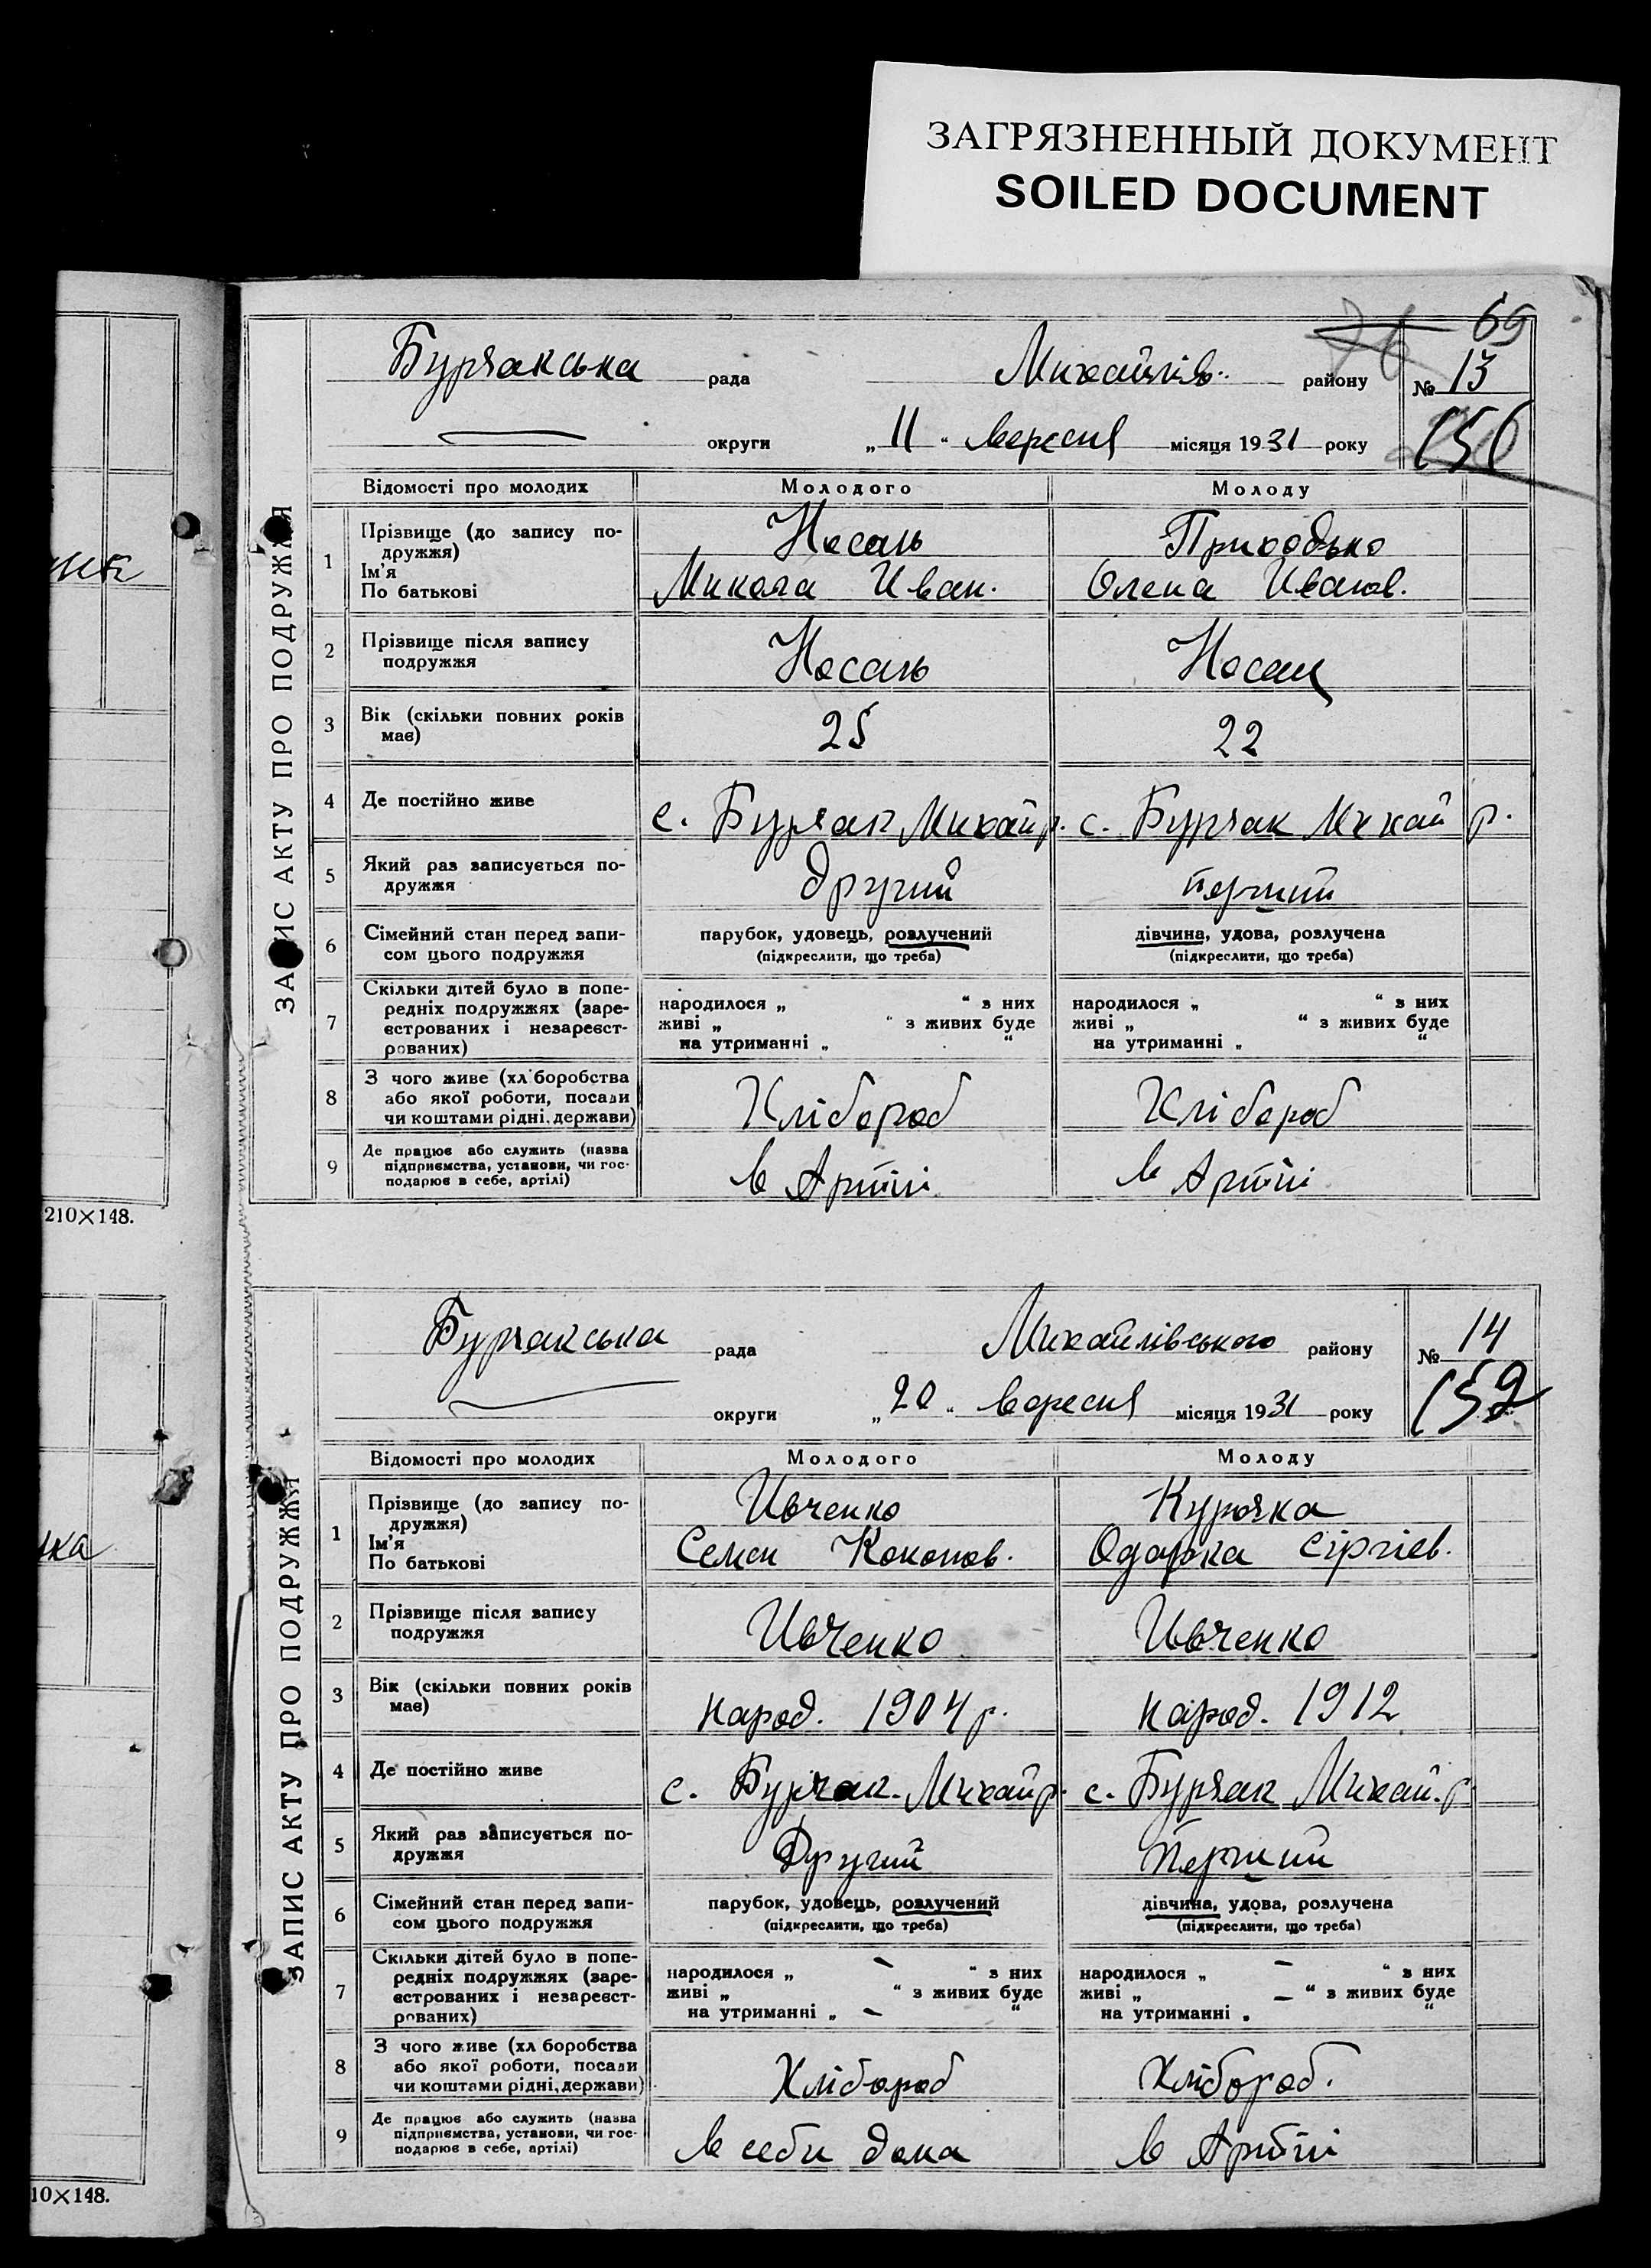 ЗАГРЯЗНЕННЫЙ ДОКУМЕНТ
SOILED DOCUMENT
69
Бурчакська рада Михайлів. району № 13
округи „11“ вересня місяця 1931 року 151
ЗАПИС АКТУ ПРО ПОДРУЖЖЯ
Відомості про молодих Молодого Молоду
1 Прізвище (до запису подружжя) Носань Приходько
Ім'я
По батькові Микола Иван. Олена Иванов.
2 Прізвище після запису подружжя Носань Носан
3 Вік (скільки повних років має) 25 22
4 Де постійно живе с. Бурчак Михай р. с. Бурчак Михай р.
5 Який раз записується подружжя другий перший
6 Сімейний стан перед записом цього подружжя парубок, удовець, розлучений дівчина, удова, розлучена
(підкреслити, що треба) (підкреслити, що треба)
7 Скільки дітей було в попередніх подружжях (зареєстрованих і незареєстрованих)
народилося „ “ з них народилося „ “ з них
живі „ “ з живих буде живі „ “ з живих буде
на утриманні „ “ на утриманні „ “
8 З чого живе (хліборобства або якої роботи, посади чи коштами рідні, держави) Хлібороб Хлібороб
9 Де працює або служить (назва підприємства, установи, чи господарює в себе, артілі) в Артілі в Артілі
210×148.
Бурчакська рада Михайлівського району № 14
округи „20“ вересня місяця 1931 року 152
ЗАПИС АКТУ ПРО ПОДРУЖЖЯ
Відомості про молодих Молодого Молоду
1 Прізвище (до запису подружжя) Ивченко Курочка
Ім'я
По батькові Семен Кононов. Одарка Сіргіев.
2 Прізвище після запису подружжя Ивченко Ивченко
3 Вік (скільки повних років має) народ. 1904 р. народ. 1912
4 Де постійно живе с. Бурчак. Михай р. с. Бурчак Михай. р
5 Який раз записується подружжя Другий Перший
6 Сімейний стан перед записом цього подружжя парубок, удовець, розлучений дівчина, удова, розлучена
(підкреслити, що треба) (підкреслити, що треба)
7 Скільки дітей було в попередніх подружжях (зареєстрованих і незареєстрованих)
народилося „ — “ з них народилося „ — “ з них
живі „ “ з живих буде живі „ — “ з живих буде
на утриманні „ — “ на утриманні „ “
8 З чого живе (хліборобства або якої роботи, посади чи коштами рідні, держави) Хлібороб Хлібороб.
9 Де працює або служить (назва підприємства, установи, чи господарює в себе, артілі) в себи дома в Артілі
10×148.